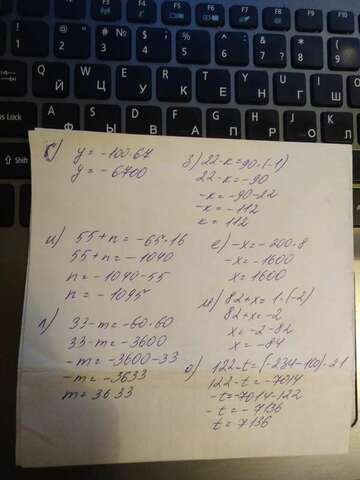 б) y = -100·67
y = -6700
и) 55+n = -65·16
55+n = -1040
n = -1040-55
n = -1095
л) 33-m = -60·60
33-m = -3600
-m = -3600-33
-m = -3633
m = 3633
з) 22-к = 90·(-1)
22-к = -90
-к = -90-22
-к = -112
к = 112
е) -x = -200·8
-x = -1600
x = 1600
м) 82+x = 1·(-2)
82+x = -2
x = -2-82
x = -84
о) 122-t = (-234-100)·21
122-t = -7014
-t = -7014-122
-t = -7136
t = 7136
F1 F2 F3 F4 F5 F6 F7 F8 F9 F10
! 1 @ 2 # № 3 $ ; 4 % 5 ^ 6 & 7 * 8 ( 9
Q Й W Ц E У R К T Е Y Н U Г I Ш
Lock